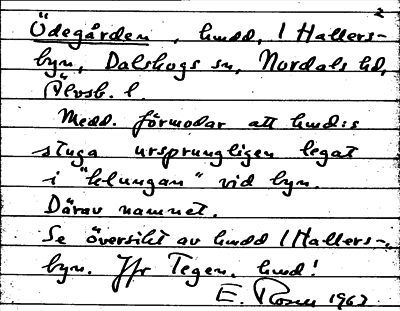 2
Ödegården, hmdd, 1 Hallers-
byn, Dalskogs sn, Nordals hd,
Älvsb. l.
Medd. förmodar att hmd:s
stuga ursprungligen legat
i "klungan" vid byn.
Därav namnet.
Se översikt av hmdd 1 Hallers-
byn. Jfr Tegen, hmd!
E. Rosén 1967